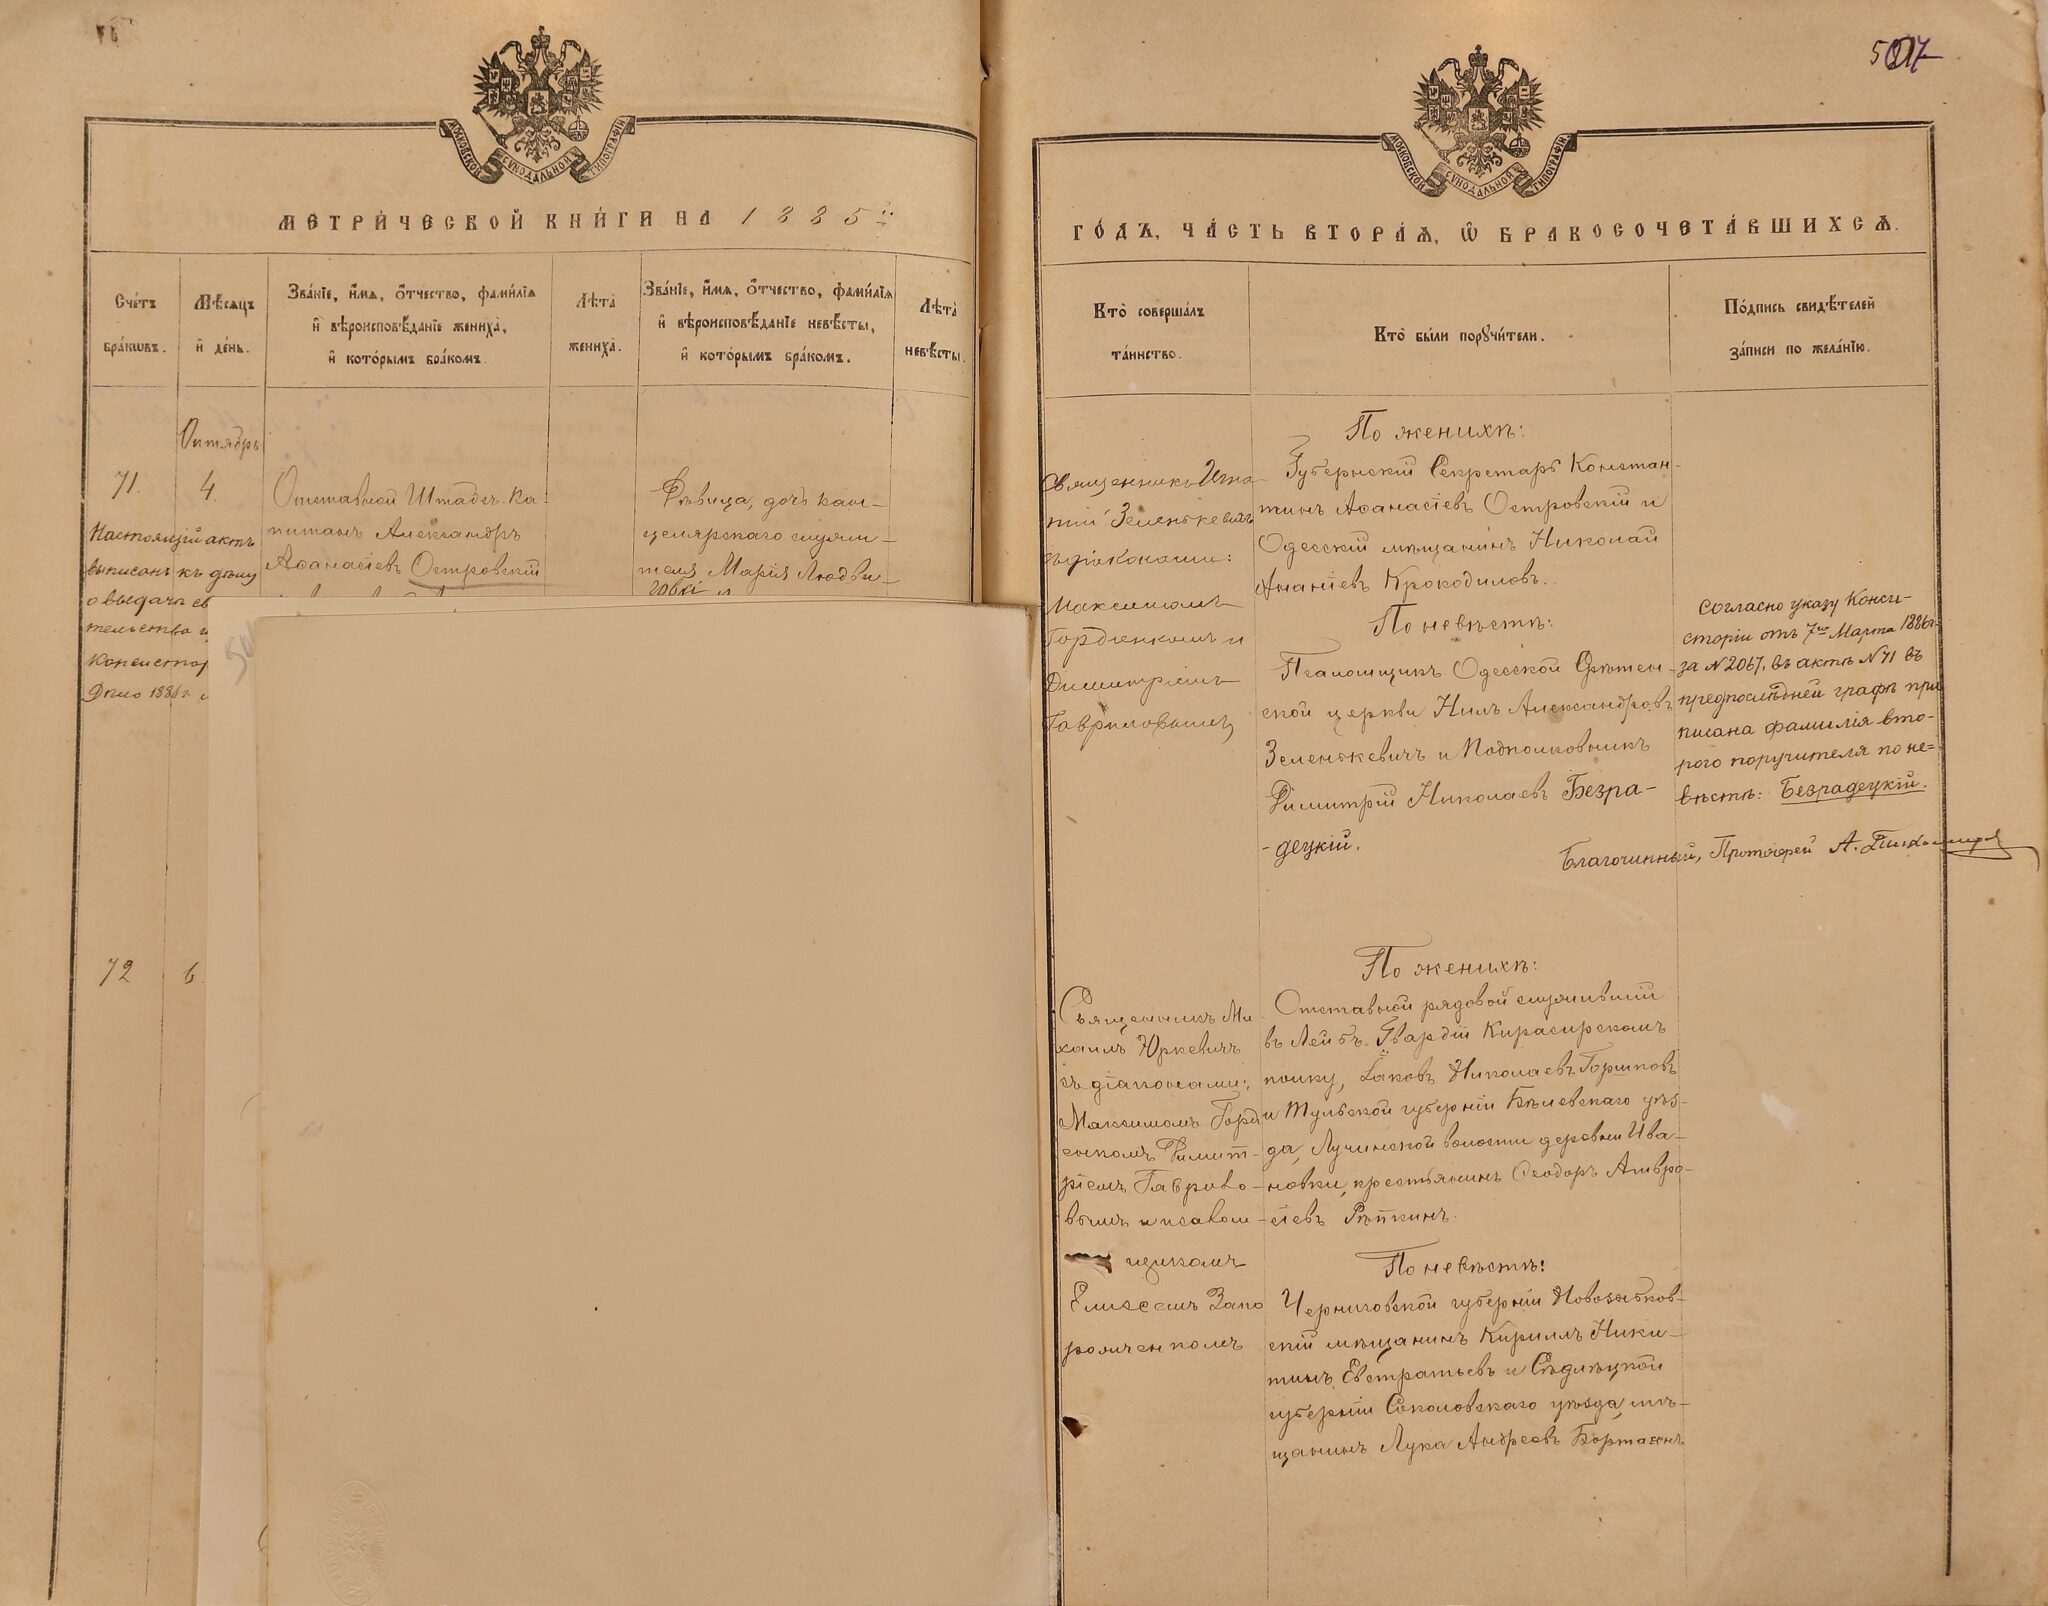 5017
МОСКОВСКОЙ СУНОДАЛЬНОЙ ТИПОГРАФІИ
МЕТРИ́ЧЕСКОЙ КНИ́ГИ НА 1885й
Сче́тъ бра́кωвъ.
Мѣ́сяцъ и҆ де́нь.
Зва́нїе, и҆́мѧ, ѻ҆́тчество, фами́лїѧ
и҆ вѣроисповѣ́данїе жениха̀,
и҆ кото́рымъ бра́комъ.
Лѣта̀ жениха̀.
Зва́нїе, и҆́мѧ, ѻ҆́тчество, фами́лїѧ
и҆ вѣроисповѣ́данїе невѣ́сты,
и҆ кото́рымъ бра́комъ.
Лѣта̀ невѣ́сты.
Октябрь
71.
4.
Отставной Штабсъ-Ка-
питанъ Александръ
Аѳанасіевъ Островскій
Дѣвица, дочь кан-
целярскаго служи-
теля Марія Людви-
гова
Настоящій актъ
выписанъ къ дѣлу
о выдачѣ сви
тельства
Консистор
Дѣло 1886 г.
72
6.
МОСКОВСКОЙ СУНОДАЛЬНОЙ ТИПОГРАФІИ
ГО́ДЪ, ЧА́СТЬ ВТОРА́Ѧ, Ѡ҆ БРАКОСОЧЕТА́ВШИХСѦ.
Кто̀ соверша́лъ
та́инство.
Кто̀ бы́ли порꙋчи́тели.
По́дпись свидѣ́телей
за́писи по жела́нїю.
Священникъ Игна-
тій Зеленькевичъ
съ діаконами:
Максимомъ
Гордіенкомъ и
Димитріемъ
Гавриловымъ
По женихѣ:
Губернскій Секретарь Констан-
тинъ Аѳанасіевъ Островскій и
Одесскій мѣщанинъ Николай
Ананіевъ Крокодиловъ.
По невѣстѣ:
Псаломщикъ Одесской Срѣтен-
ской церкви Нилъ Александровъ
Зеленькевичъ и Подполковникъ
Димитрій Николаевъ Безра-
-децкій.
Согласно указу Конси-
сторіи отъ 7го Марта 1886 г.
за N 2067, въ актѣ N 71 въ
предпослѣдней графѣ при
писана фамилія вто-
рого поручителя по не-
вѣстѣ: Безрадецкій.
Благочинный, Протоіерей А.
Священникъ Ми
хаилъ Юркевичъ
съ діаконами:
Максимомъ Горді
енкомъ Димит-
ріемъ Гаврило-
вымъ и псалом-
щикомъ
Елисеемъ Запо
рожченкомъ
По женихѣ:
Отставной рядовой служившій
въ Лейбъ-Гвардіи Кирасирскомъ
полку, Іаковъ Николаевъ Горшковъ
и Тульской губерніи Бѣлевскаго уѣз-
да, Лучинской волости деревни Ива-
новки, крестьянинъ Ѳеодоръ Амвро-
сіевъ Рѣпкинъ.
По невѣстѣ:
Черниговской губерніи Новозыбков-
скій мѣщанинъ Кириллъ Ники-
тинъ Евстратьевъ и Сѣдлѣцкой
губерніи Соколовскаго уѣзда, мѣ-
щанинъ Лука Андреевъ